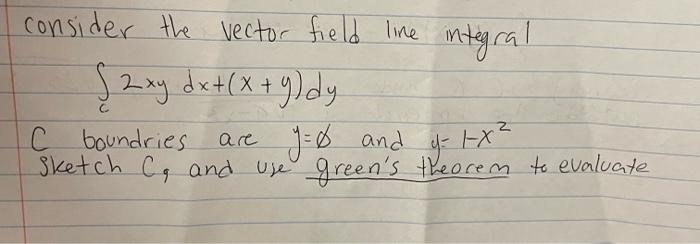 consider the vector field line integral
∫c 2xy dx+(x+y)dy
C boundries are y=0 and y=1-x²
sketch C, and use green's theorem to evaluate